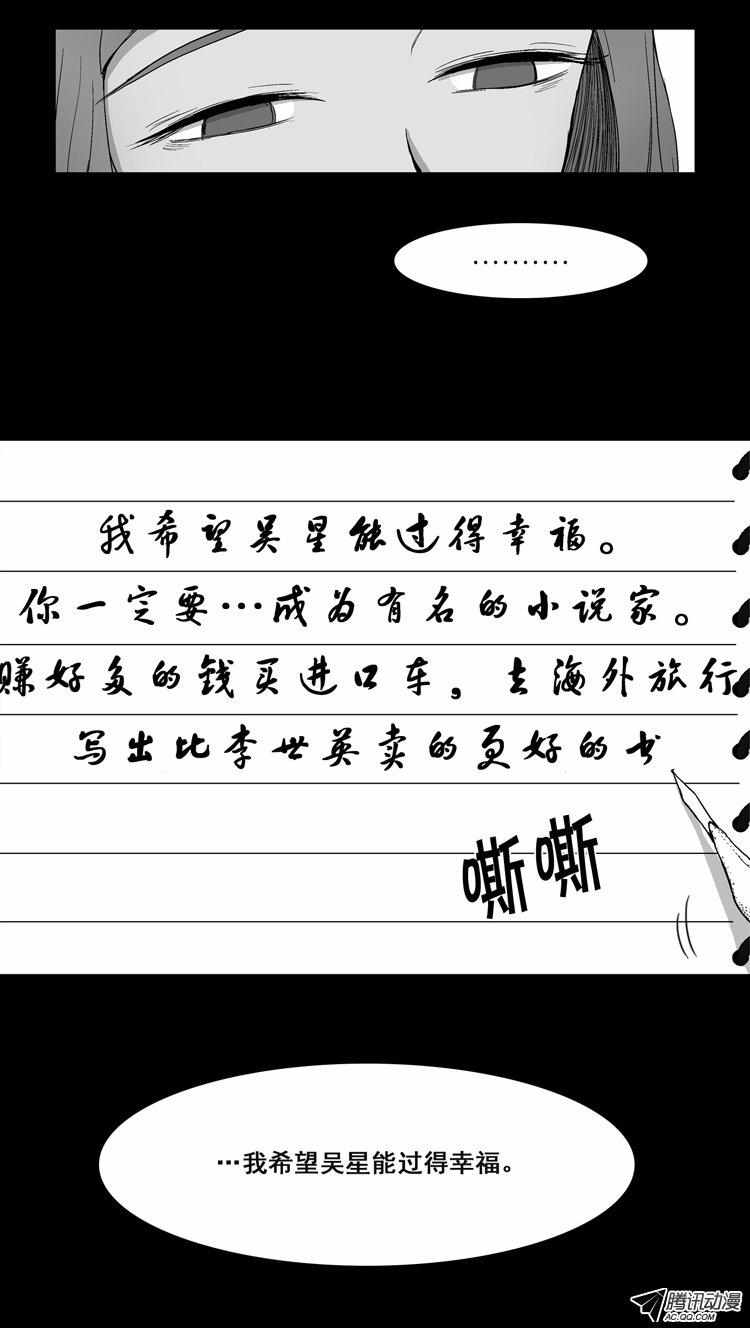 ··········
我希望吴星能过得幸福。
你一定要···成为有名的小说家。
赚好多的钱买进口车，去海外旅行
写出比李世英卖的更好的书
嘶嘶
···我希望吴星能过得幸福。
腾讯动漫
AC.QQ.COM